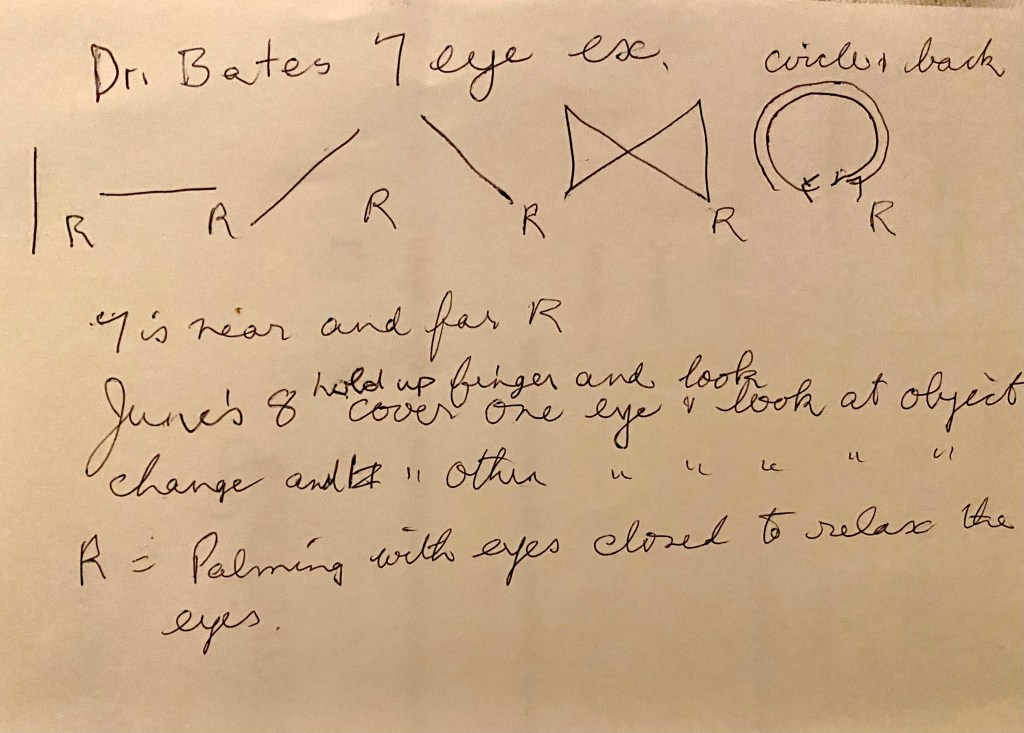 Dr. Bates 7 eye ex.
circle & back
R R R R R R
7 is near and far R
hold up finger and look
June's 8 cover one eye & look at object
change and " other " " " " "
R = Palming with eyes closed to relax the
eyes.